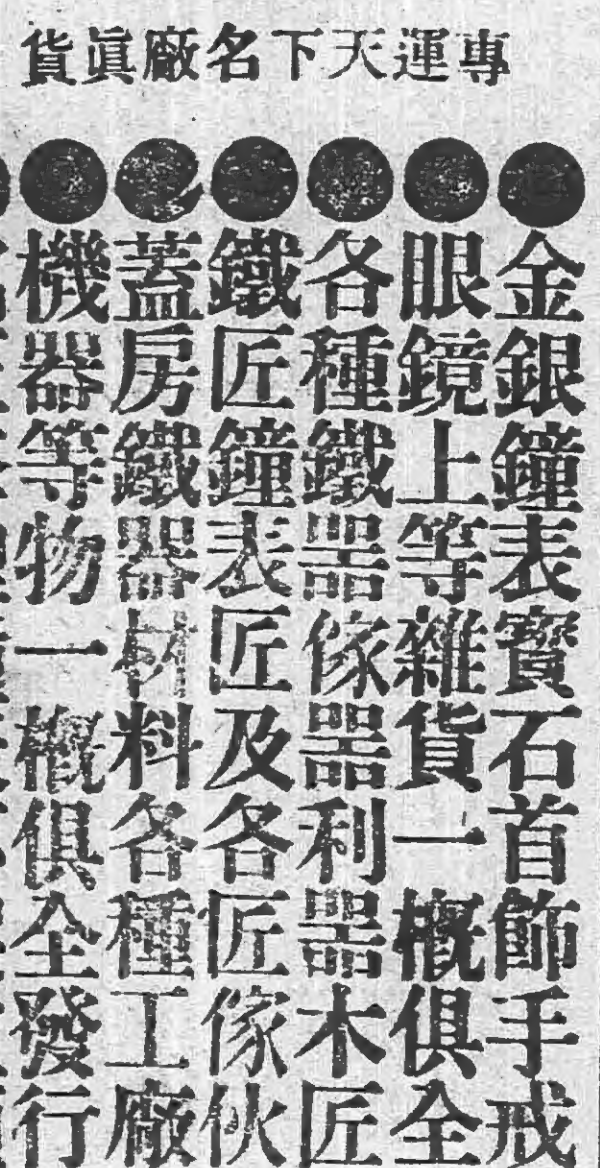 專運天下名廠眞貨
金銀鐘表寶石首飾手戒
眼鏡上等雜貨一概俱全
各種鐵器傢器利器木匠
鐵匠鐘表匠及各匠傢伙
蓋房鐵器材料各種工廠
機器等物一概俱全發行